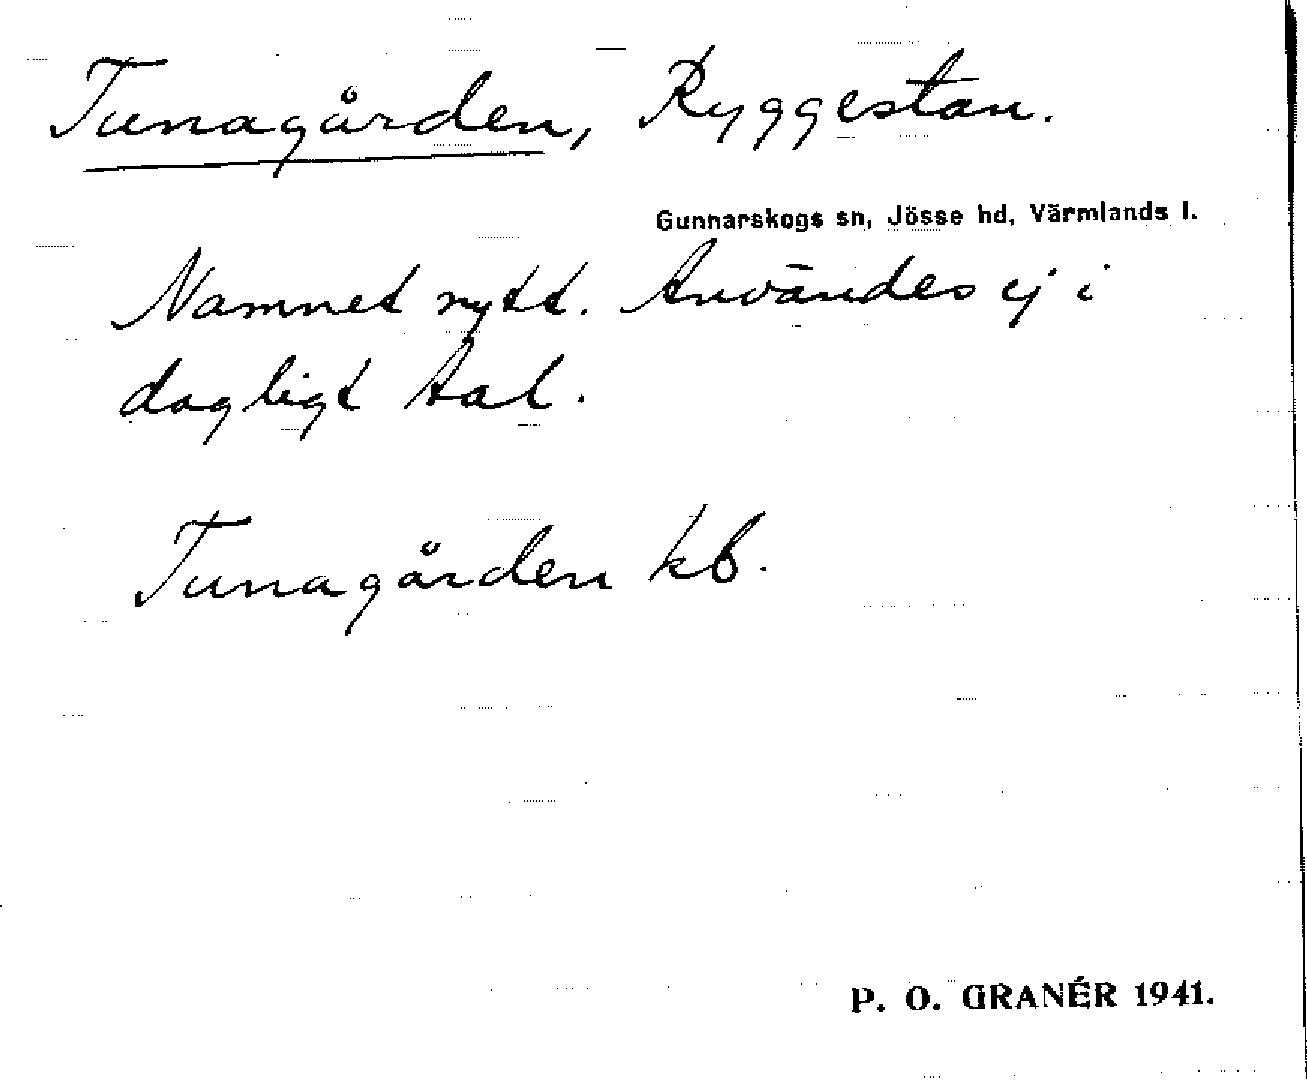 Tunagården, Ryggestan.
Gunnarskogs sn, Jösse hd, Värmlands l.
Namnet nytt. Användes ej i
dagligt tal.
Tunagården kb.
P. O. GRANÉR 1941.